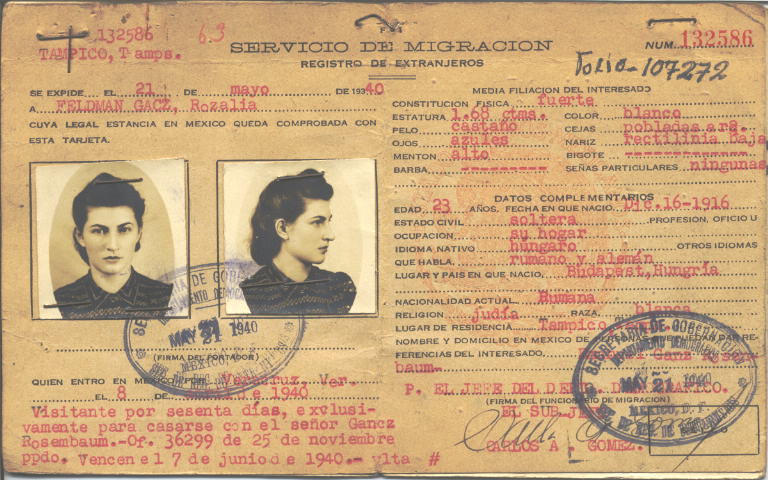 132586
TAMPICO, Tamps.
6.3
SERVICIO DE MIGRACION
REGISTRO DE EXTRANJEROS
NUM. 132586
Folio-107272
SE EXPIDE EL 21 DE mayo DE 1940
A FELDMAN GACZ, Rozalia
CUYA LEGAL ESTANCIA EN MEXICO QUEDA COMPROBADA CON
ESTA TARJETA.
MAY 21 1940
(FIRMA DEL PORTADOR)
QUIEN ENTRO EN MEXICO POR Veracruz, Ver.
EL 8 DE DE 1940
Visitante por sesenta días, exvlusi-
vamente para casarse con el señor Gancz
Rosembaum.-Of. 36299 de 25 de noviembre
ppdo. Vence el 7 de junio de 1940.- vlta #
MEDIA FILIACION DEL INTERESADO
CONSTITUCION FISICA fuerte
ESTATURA 1.68 ctms. COLOR blanco
PELO castaño CEJAS pobladas arq.
OJOS azules NARIZ rectilinia baja
MENTON alto BIGOTE ------------
BARBA --------- SEÑAS PARTICULARES ningunas
DATOS COMPLEMENTARIOS
EDAD 23 AÑOS, FECHA EN QUE NACIO Dic.16-1916
ESTADO CIVIL soltera PROFESION, OFICIO U
OCUPACION su hogar
IDIOMA NATIVO hungaro OTROS IDIOMAS
QUE HABLA rumano y alemán
LUGAR Y PAIS EN QUE NACIO Budapest, Hungria
NACIONALIDAD ACTUAL Rumana
RELIGION judía RAZA blanca
LUGAR DE RESIDENCIA Tampico
NOMBRE Y DOMICILIO EN MEXICO DE PERSONAS QUE PUEDAN DAR RE-
FERENCIAS DEL INTERESADO
baum.-
P. EL JEFE DEL DEMOGRAFICO.
(FIRMA DEL FUNCIONARIO DE MIGRACION)
EL SUB-JEFE
CARLOS A. GOMEZ.
SECRETARIA DE GOBERNACION
MAY 21 1940
MEXICO, D. F.